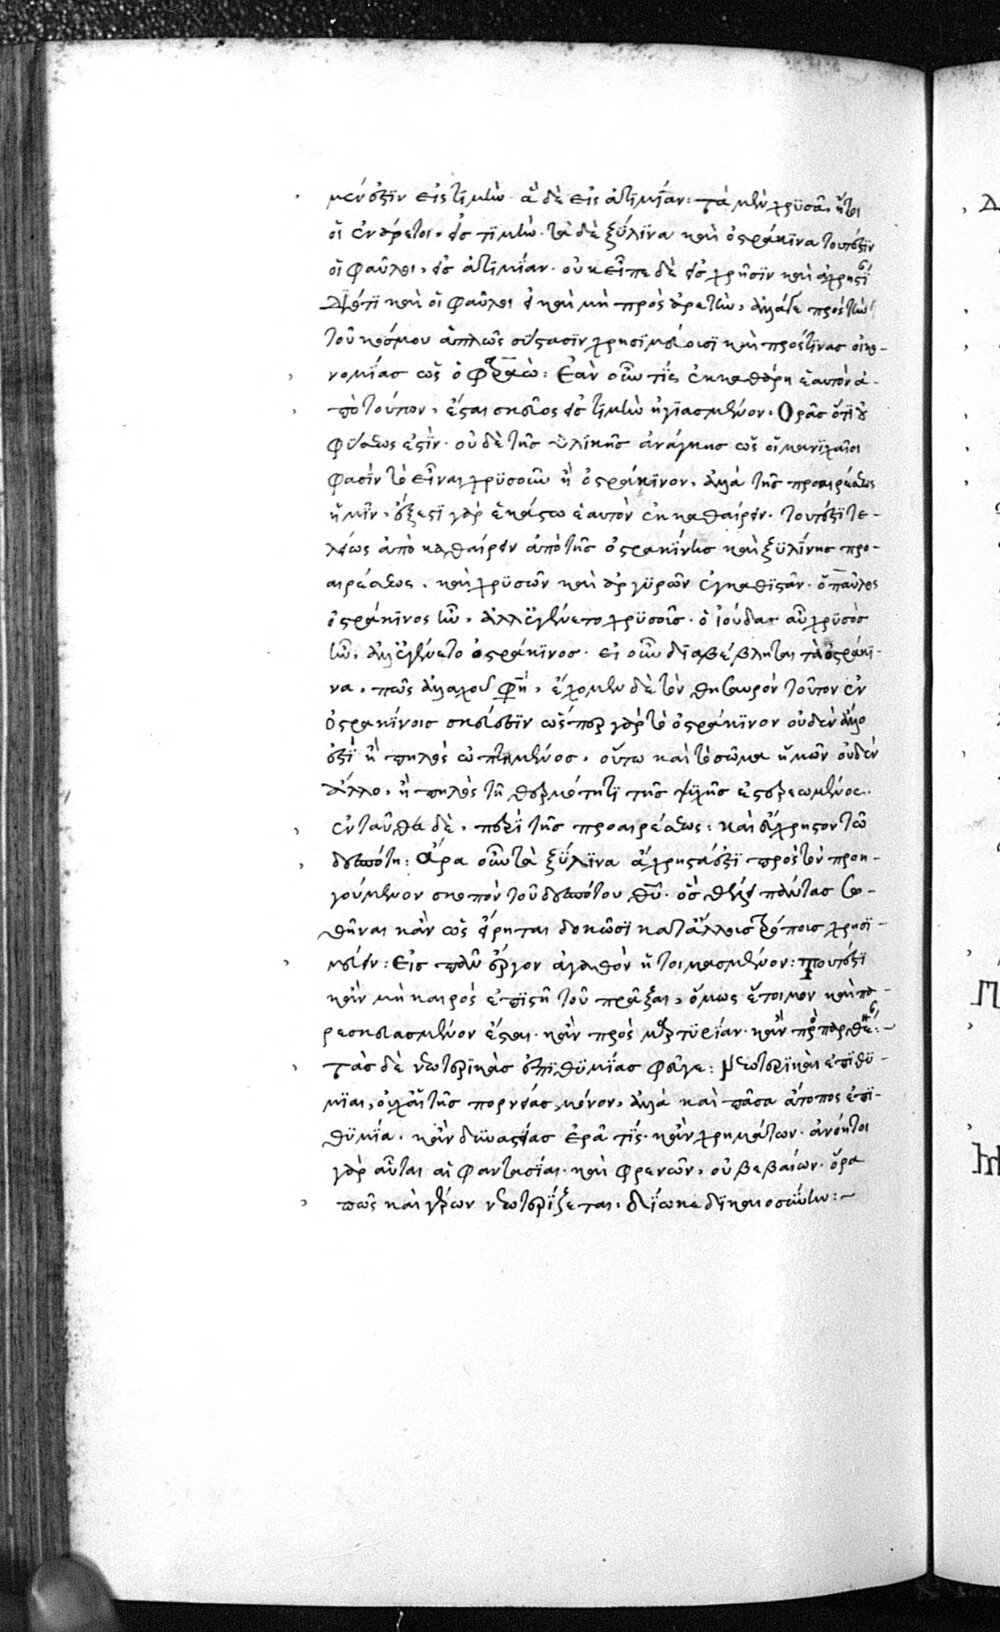 μέν ἐστιν εἰς τιμὴν· ἃ δὲ εἰς ἀτιμίαν: τὰ μὲν χρυσᾶ, ἤτοι
οἱ ἐνάρετοι, εἰς τιμὴν· τὰ δὲ ξύλινα καὶ ὀστράκινα τουτέστιν
οἱ φαῦλοι, εἰς ἀτιμίαν· οὐκ εἶπε δὲ εἰς χρῆσιν καὶ ἀχρηστί
διότι καὶ οἱ φαῦλοι εἰ καὶ μὴ πρὸς ἀρετὴν, ἀλλά γε πρὸς τὴν
τοῦ κόσμου ἁπλῶς σύστασιν χρησιμεύουσι καὶ πρός τινας οἰκο-
νομίας ὡς ὁ φαραώ: Ἐὰν οὖν τίς ἐκκαθάρῃ ἑαυτὸν ἀ-
πὸ τούτων, ἔσται σκεῦος εἰς τιμὴν ἡγιασμένον. Ὁρᾷς ὅτι οὐ
φύσεως ἐστὶν· οὐδὲ τῆς ὑλικῆς ἀνάγκης ὡς οἱ μανιχαῖοι
φασὶν τὸ εἶναι χρυσοῦν ἢ ὀστράκινον, ἀλλὰ τῆς προαιρέσεως
ἡμῖν, ἔξεστι γὰρ ἑκάστω ἑαυτὸν ἐκκαθαίρειν. τουτέστι τε-
λείως ἀποκαθαίρειν ἀπὸ τῆς ὀστρακίνης καὶ ξυλίνης προ-
αιρέσεως, καὶ χρυσῶν καὶ ἀργυρῶν ἐγκαθιστᾶν. ὁ παῦλος
ὀστράκινος ἦν, ἀλλ' ἐγένετο χρυσοῦς· ὁ ἰούδας αὖ χρυσὸς
ἦν, ἀλλ' ἐγένετο ὀστράκινος. εἰ οὖν διαβέβληται τὰ ὀστράκι-
να, πῶς ἀλλαχοῦ φησί, ἔχομεν δὲ τὸν θησαυρὸν τοῦτον ἐν
ὀστρακίνοις σκεύεσιν ὥσπερ γὰρ τὸ ὀστράκινον οὐδὲν ἄλλο
ἐστὶ ἢ πηλὸς ὠπτημένος, οὕτω καὶ τὸ σῶμα ἡμῶν οὐδὲν
ἄλλο, ἢ πηλὸς τῇ θερμότητι τῆς ψυχῆς ἐστερεωμένος.
ἐνταῦθα δὲ, περὶ τῆς προαιρέσεως: καὶ εὔχρηστον τῶ
δεσπότῃ: Ἄρα οὖν τὰ ξύλινα ἄχρηστά ἐστι πρὸς τὸν προη-
γούμενον σκοπὸν τοῦ δεσπότου θυ· ὃς θέλει πάντας σω-
θῆναι κἂν ὡς εἴρηται δοκῶσι κατ' ἄλλους τρόπους χρησι-
μεύειν: Εἰς πᾶν ἔργον ἀγαθὸν ἡτοιμασμένον: Τουτέστι
κἂν μὴ καιρὸς ἐπιστῇ τοῦ πρᾶξαι, ὅμως ἕτοιμον καὶ πα-
ρεσκευασμένον ἔσται· κἂν πρὸς μαρτυρίαν· κἂν πρὸς παρθενί:~
Τὰς δὲ νεωτερικὰς ἐπιθυμίας φεῦγε: Νεωτερικαὶ ἐπιθυ-
μίαι, οὐχ αἱ τῆς πορνείας μόνον, ἀλλὰ καὶ πᾶσα ἄτοπος ἐπι-
θυμία. κἂν δυναστείας ἐρᾷ τίς· κἂν χρημάτων. ἀνόητοι
γὰρ αὗται αἱ φαντασίαι· καὶ φρενῶν, οὐ βεβαίων. ὅρα
πῶς καὶ γέρων νεωτερίζεται. δίωκε δικαιοσύνην:~